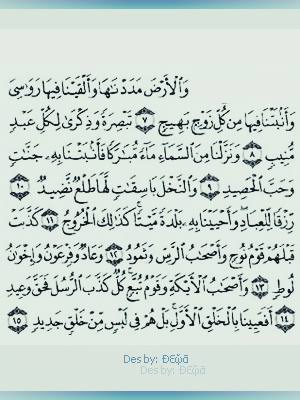 وَٱلْأَرْضَ مَدَدْنَٰهَا وَأَلْقَيْنَا فِيهَا رَوَٰسِىَ
وَأَنۢبَتْنَا فِيهَا مِن كُلِّ زَوْجٍۭ بَهِيجٍ ٧ تَبْصِرَةً وَذِكْرَىٰ لِكُلِّ عَبْدٍ
مُّنِيبٍ ٨ وَنَزَّلْنَا مِنَ ٱلسَّمَآءِ مَآءً مُّبَٰرَكًا فَأَنۢبَتْنَا بِهِۦ جَنَّٰتٍ
وَحَبَّ ٱلْحَصِيدِ ٩ وَٱلنَّخْلَ بَاسِقَٰتٍ لَّهَا طَلْعٌ نَّضِيدٌ ١٠
رِّزْقًا لِّلْعِبَادِ وَأَحْيَيْنَا بِهِۦ بَلْدَةً مَّيْتًا كَذَٰلِكَ ٱلْخُرُوجُ ١١ كَذَّبَتْ
قَبْلَهُمْ قَوْمُ نُوحٍ وَأَصْحَٰبُ ٱلرَّسِّ وَثَمُودُ ١٢ وَعَادٌ وَفِرْعَوْنُ وَإِخْوَٰنُ
لُوطٍ ١٣ وَأَصْحَٰبُ ٱلْأَيْكَةِ وَقَوْمُ تُبَّعٍ كُلٌّ كَذَّبَ ٱلرُّسُلَ فَحَقَّ وَعِيدِ
١٤ أَفَعَيِينَا بِٱلْخَلْقِ ٱلْأَوَّلِ بَلْ هُمْ فِى لَبْسٍ مِّنْ خَلْقٍ جَدِيدٍ ١٥
Des by:
Des by: